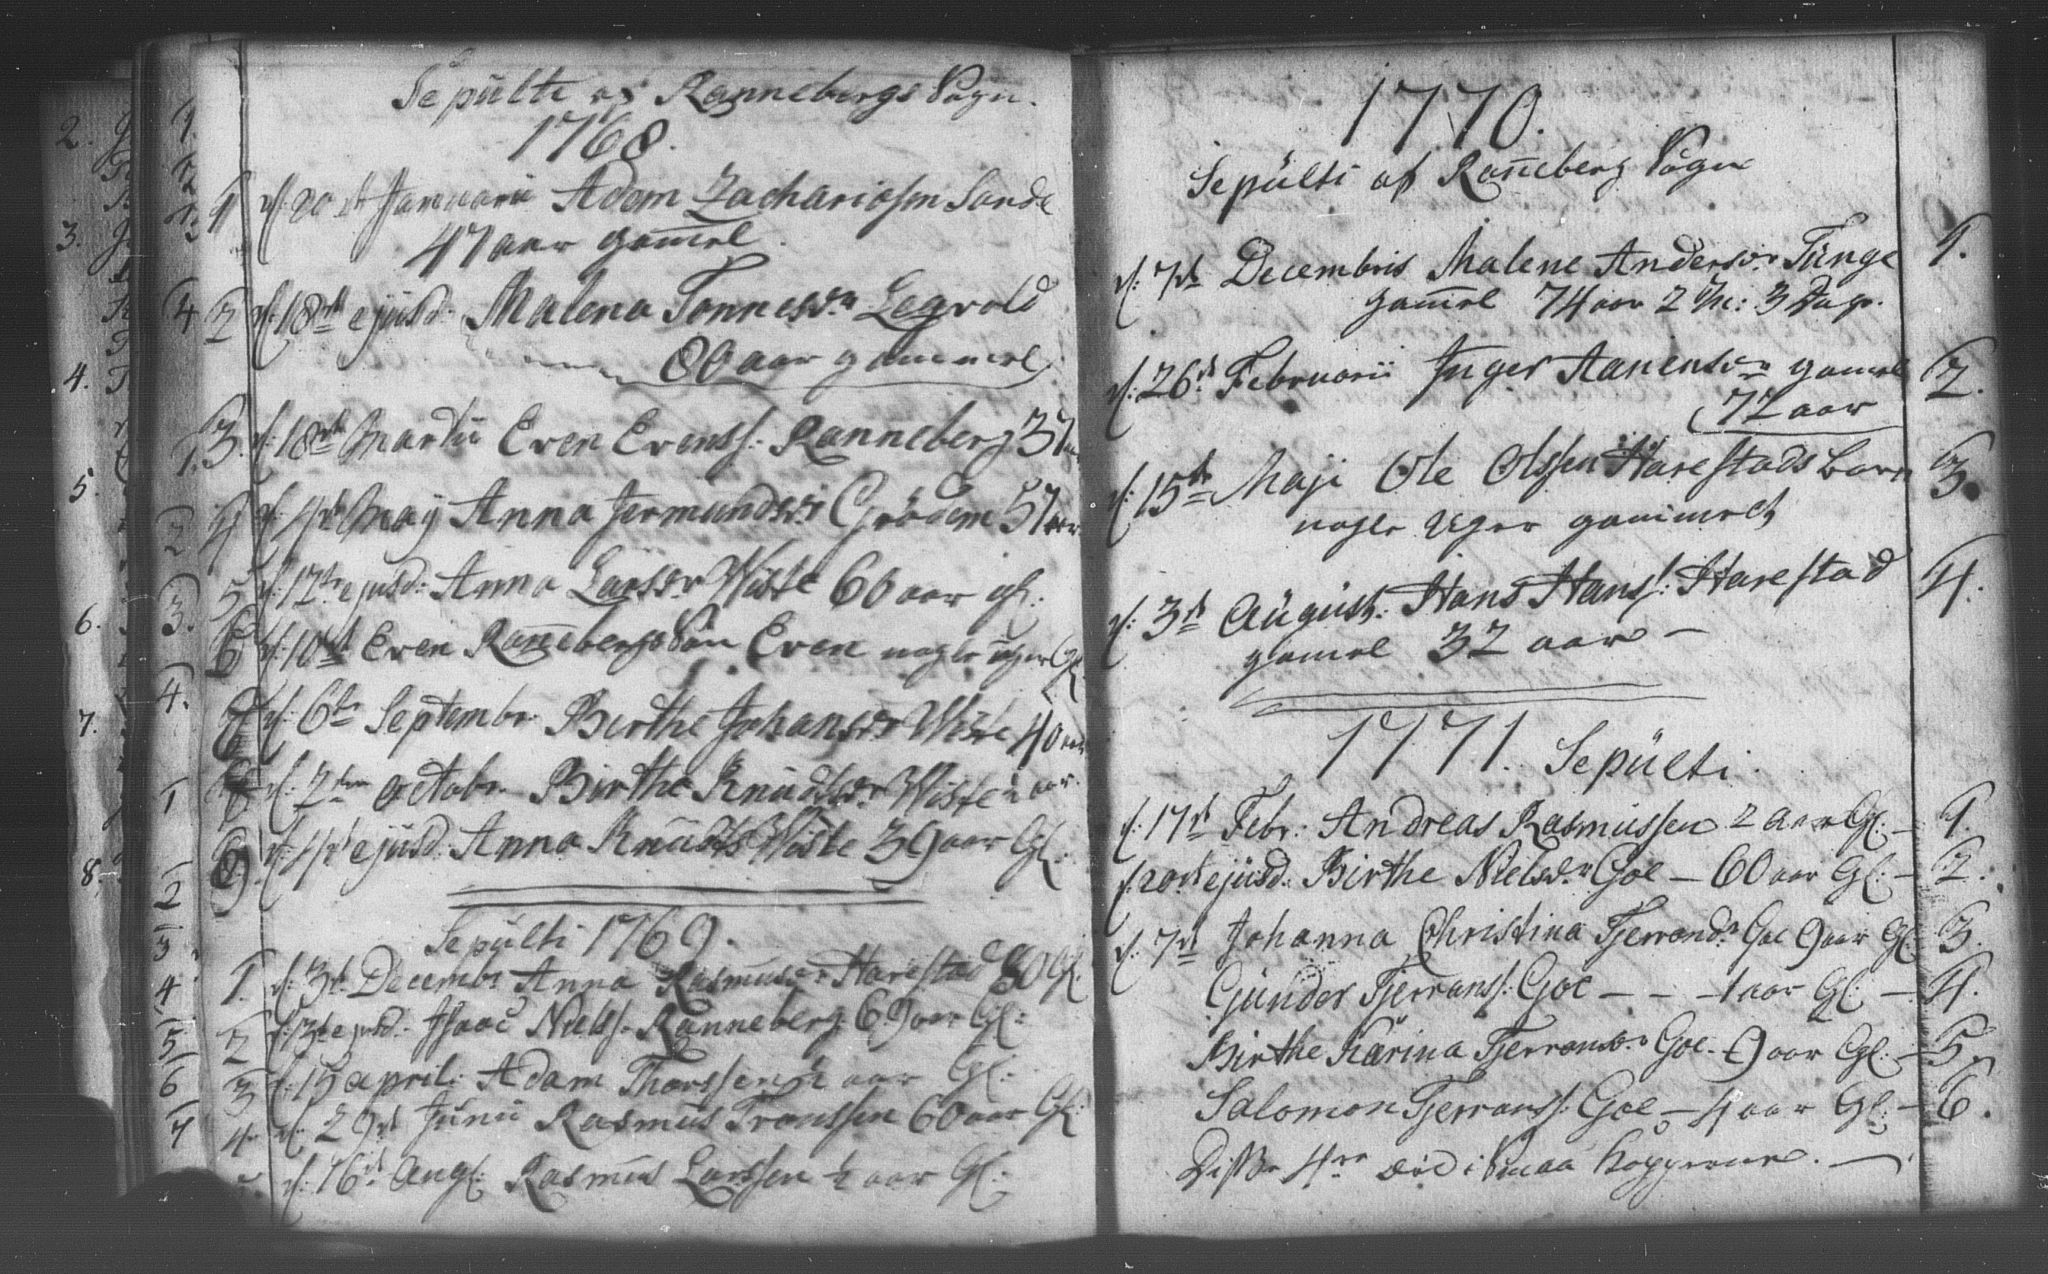 Sepulti af Rannebergs Sogn.
1768.
1 d. 20de Januarii Adam Zachariasen Sande
47 aar gam̄el.
2 d. 18de ejusd: Malena Tønnesdr Legvold
80 aar gammel
3. d. 18de Martii Even Evenss: Ranneberg 37 aar
4 d. 4de May Anna Jermundsdr Grødem 57 aar
5 d. 12te ejusd: Anna Larsdr Wiste 60 aar gl:
6 d. 18de Even Ran̄ebergs Søn Even nogle uger Gl.
7 d. 6te Septembr. Birthe Johansdr Wiste 40 aar
8 d. 2den Octobr. Birthe Knudsdr Wiste aar.
9. d. 4de ejusd. Anna Knuds Wiste 39 aar Gl:
Sepulti 1769.
1. d. 3de Decembr Anna Rasmusdr Harestad 80 Gl.
2 d. 13de ejusd. Isaac Nielss. Ranneberg 69 aar Gl:
3 d. 15 april: Adam Thorssen ½ aar Gl:
4. d. 29de Junii Rasmus Tronssen 60 aar Gl:
5. d. 16de Aug: Rasmus Larssen ½ aar Gl:
1770.
Sepulti af Ran̄eberg Sogn
d. 7de Decembris Malene Andersdr Tunge 1.
gam̄el 74 aar 2 M: 3 Dage.
d. 26de Februarii Inger Aanensdr gamel 2.
72 aar
d. 15de Maji Ole Olssen Harestads barn 3.
nogle Uger gammelt
d. 3de August. Hans Hans: Harestad 4.
gamel 32 aar –
1771. Sepulti.
d. 17de Febr: Andreas Rasmussen 2 aar Gl. – 1.
d. 20de ejusd. Birthe Nielsdr Goe – 60 aar Gl: – 2.
d. 7de Johanna Christina Tjerrandsdr Goe 9 aar Gl: 3.
Gunder Tjerranss: Goe – – – 1 aar Gl: – 4.
Birthe Karina Tjerransdr Goe – 9 aar Gl: – 5.
Salomon Tjerranss: Goe – 4 aar Gl: – 6.
Disse 4re død i Smaa Kopperne. –